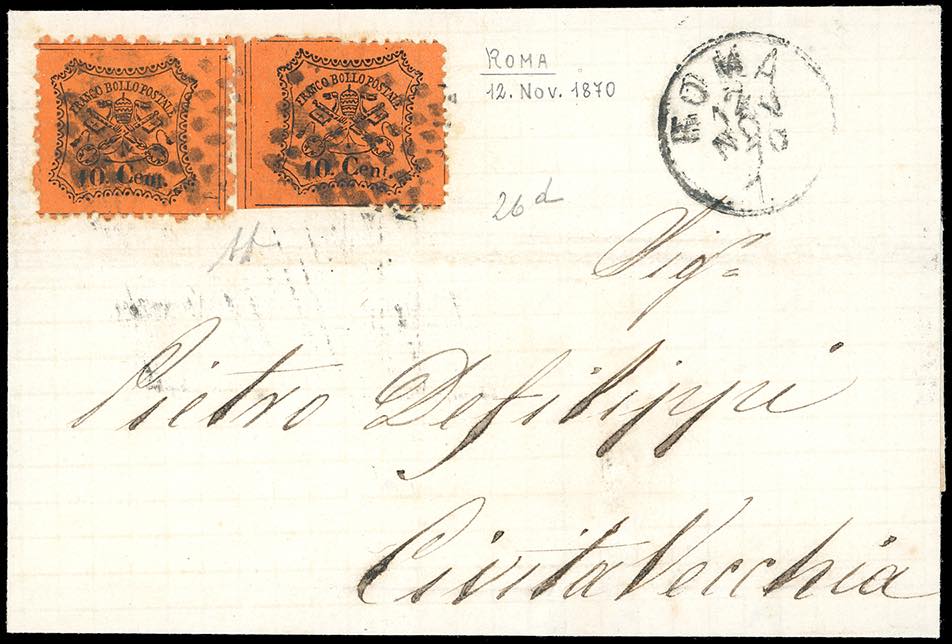 FRANCO BOLLO POSTALE
10 Cent.
FRANCO BOLLO POSTALE
10 Cent.
ROMA
12. Nov. 1870
ROMA
12
NOV
70
1
26 d
Sigr
Pietro Defilippi
CivitaVecchia